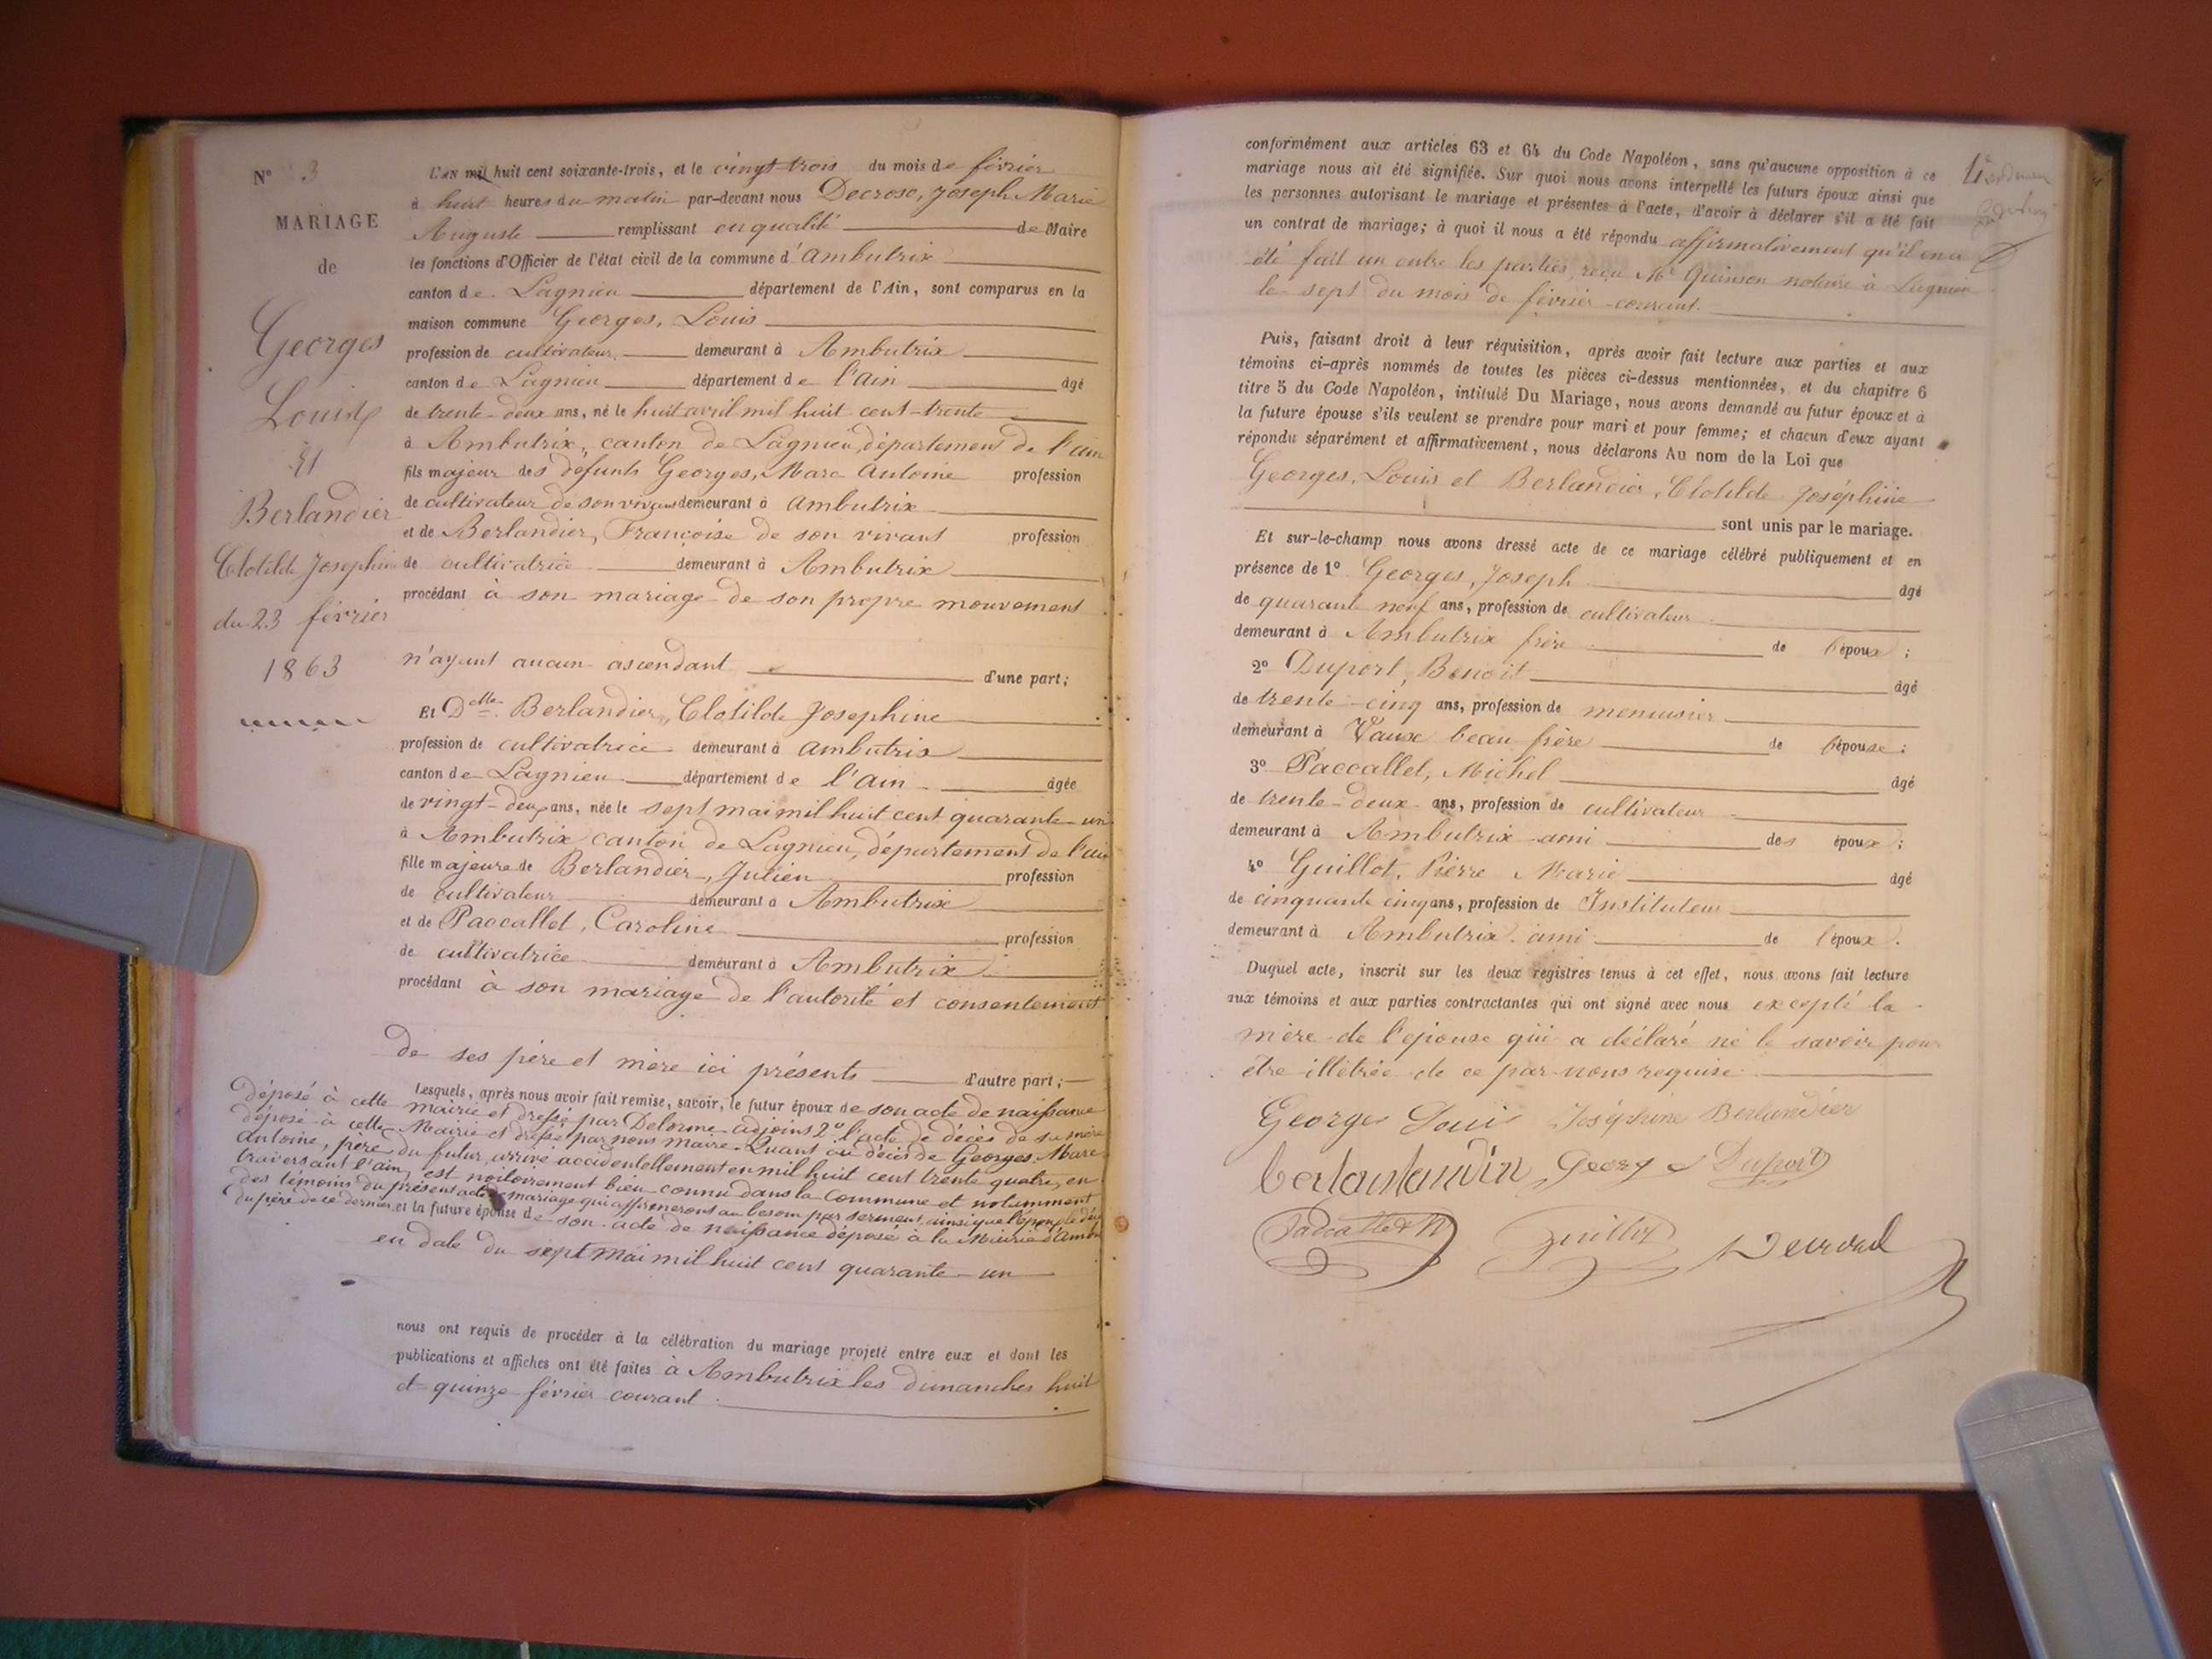 N° 3
MARIAGE
de
Georges
Louis
Et
Berlandier
Clotilde Josephine
du 23 février
1863
L'AN mil huit cent soixante-trois, et le vingt-trois du mois de février
à huit heures du matin par-devant nous Decroso, Joseph Marie
Auguste remplissant en qualité de Maire
les fonctions d'Officier de l'état civil de la commune d'Ambutrix
canton de Lagnieu département de l'Ain, sont comparus en la
maison commune Georges, Louis
profession de cultivateur demeurant à Ambutrix
canton de Lagnieu département de l'ain âgé
de trente-deux ans, né le huit avril mil huit cent-trente
à Ambutrix, canton de Lagnieu, département de l'ain
fils majeur des défunts Georges, Marc Antoine profession
de cultivateur de son vivant demeurant à Ambutrix
et de Berlandier, Françoise de son vivant profession
de cultivatrice demeurant à Ambutrix
procédant à son mariage de son propre mouvement
n'ayant aucun ascendant d'une part;
Et Delle Berlandier, Clotilde Josephine
profession de cultivatrice demeurant à Ambutrix
canton de Lagnieu département de l'ain âgée
de vingt-deux ans, née le sept mai mil huit cent quarante-un
à Ambutrix canton de Lagnieu, département de l'ain
fille majeure de Berlandier, Julien profession
de cultivateur demeurant à Ambutrix
et de Paccallet, Caroline profession
de cultivatrice demeurant à Ambutrix
procédant à son mariage de l'autorité et consentement
de ses père et mère ici présents d'autre part;
Lesquels, après nous avoir fait remise, savoir, le futur époux de son acte de naissance
déposé à cette mairie et dressé par Delorme adjoint 2° l'acte de décès de sa mère
déposé à cette Mairie et dressé par nous maire. Quant au décès de Georges, Marc
Antoine, père du futur, arrivé accidentellement en mil huit cent trente quatre, en
traversant l'ain, est notoirement bien connu dans la commune et notamment
des témoins du présent acte de mariage qui affirmeront au besoin par serment, ainsi que l'époux le décès
du père de ce dernier, et la future épouse de son acte de naissance déposé à la Mairie d'Ambu
en date du sept Mai mil huit cent quarante-un
nous ont requis de procéder à la célébration du mariage projeté entre eux et dont les
publications et affiches ont été faites à Ambutrix les dimanches huit
et quinze février courant.
conformément aux articles 63 et 64 du Code Napoléon, sans qu'aucune opposition à ce
mariage nous ait été signifiée. Sur quoi nous avons interpellé les futurs époux ainsi que
les personnes autorisant le mariage et présentes à l'acte, d'avoir à déclarer s'il a été fait
un contrat de mariage; à quoi il nous a été répondu affirmativement qu'il en a
été fait un entre les parties, reçu Me Quinson notaire à Lagnieu
le sept du mois de février courant.
Puis, faisant droit à leur réquisition, après avoir fait lecture aux parties et aux
témoins ci-après nommés de toutes les pièces ci-dessus mentionnées, et du chapitre 6
titre 5 du Code Napoléon, intitulé Du Mariage, nous avons demandé au futur époux et à
la future épouse s'ils veulent se prendre pour mari et pour femme; et chacun d'eux ayant
répondu séparément et affirmativement, nous déclarons Au nom de la Loi que
Georges, Louis et Berlandier, Clotilde Joséphine
sont unis par le mariage.
Et sur-le-champ nous avons dressé acte de ce mariage célébré publiquement et en
présence de 1° Georges, Joseph âgé
de quarante neuf ans, profession de cultivateur
demeurant à Ambutrix frère de l'époux;
2° Duport, Benoit âgé
de trente-cinq ans, profession de menuisier
demeurant à Vaux beau frère de l'épouse;
3° Paccallet, Michel âgé
de trente-deux ans, profession de cultivateur
demeurant à Ambutrix ami des époux;
4° Guillot, Pierre Marie âgé
de cinquante cinq ans, profession de Instituteur
demeurant à Ambutrix. ami de l'époux.
Duquel acte, inscrit sur les deux registres tenus à cet effet, nous avons fait lecture
aux témoins et aux parties contractantes qui ont signé avec nous excepté la
mère de l'épouse qui a déclaré ne le savoir pour
être illétrée de ce par nous requise.
Georges Loui Joséphine Berlandier
Georges Duport